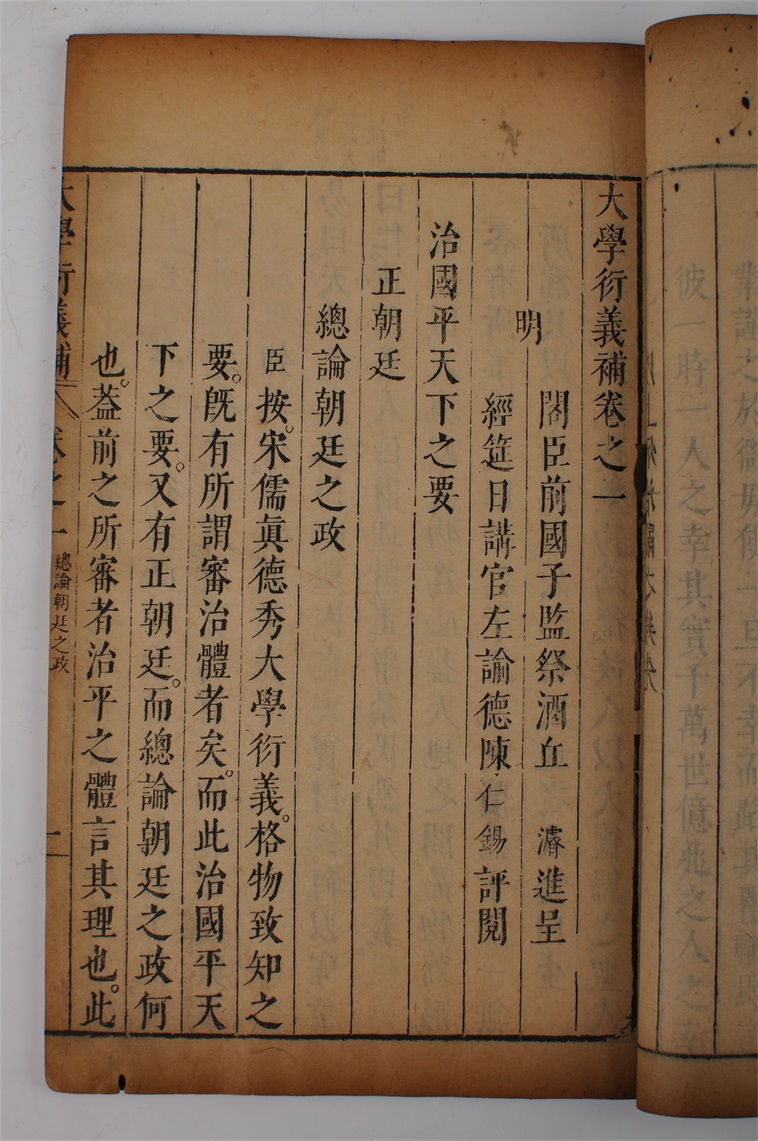 大學衍義補卷之一
明
閣臣前國子監祭酒丘　濬進呈
經筵日講官左諭德陳仁錫評閱
治國平天下之要
正朝廷
總論朝廷之政
臣按宋儒眞德秀大學衍義格物致知之
要。旣有所謂審治體者矣。而此治國平天
下之要。又有正朝廷。而總論朝廷之政何
也。葢前之所審者治平之體言其理也。此
大學衍義補　卷之一　總論朝廷之政　一
彼一時一人之幸其實千萬世億兆之人之